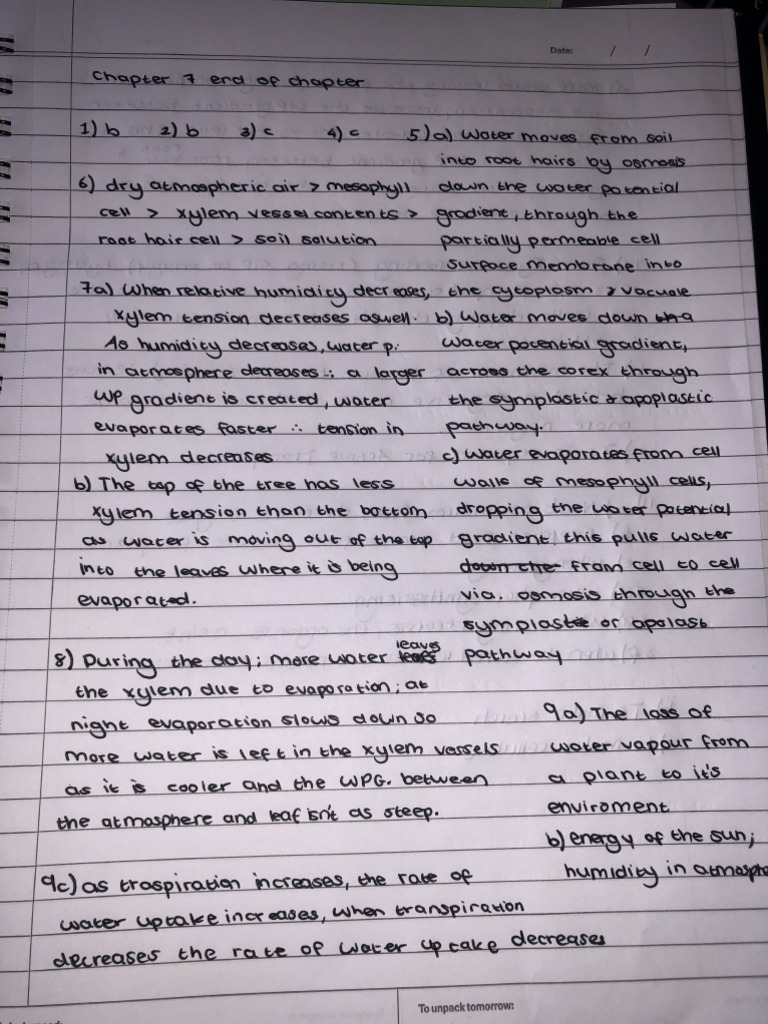 Date: / /
Chapter 7 end of chapter
1) b 2) b 3) c 4) c
6) dry atmospheric air > mesaphyll
cell > xylem vessel contents >
root hair cell > soil solution
7a) When relative humidity decreases,
xylem tension decreases aswell.
As humidity decreases, water p.
in atmosphere decreases ∴ a larger
WP gradient is created, water
evaporates faster ∴ tension in
xylem decreases
b) The top of the tree has less
xylem tension than the bottom
as water is moving out of the top
into the leaves where it is being
evaporated.
8) During the day; more water leaves
the xylem due to evaporation; at
night evaporation slows down so
more water is left in the xylem vessels
as it is cooler and the WPG. between
the atmosphere and leaf isn't as steep.
5) a) Water moves from soil
into root hairs by osmosis
down the water potential
gradient, through the
partially permeable cell
surface membrane into
the cytoplasm & vacuole
b) Water moves down a
water potential gradient,
across the corex through
the symplastic & apoplastic
pathway.
c) Water evaporates from cell
walls of mesophyll cells,
dropping the water potential
gradient, this pulls water
down the from cell to cell
via. osmosis through the
symplast or apolast
pathway
9a) The loss of
water vapour from
a plant to it's
enviroment
b) energy of the sun;
humidity in atmosphe
9c) as traspiration increases, the rate of
water uptake increases, when transpiration
decreases the rate of water uptake decreases
To unpack tomorrow: